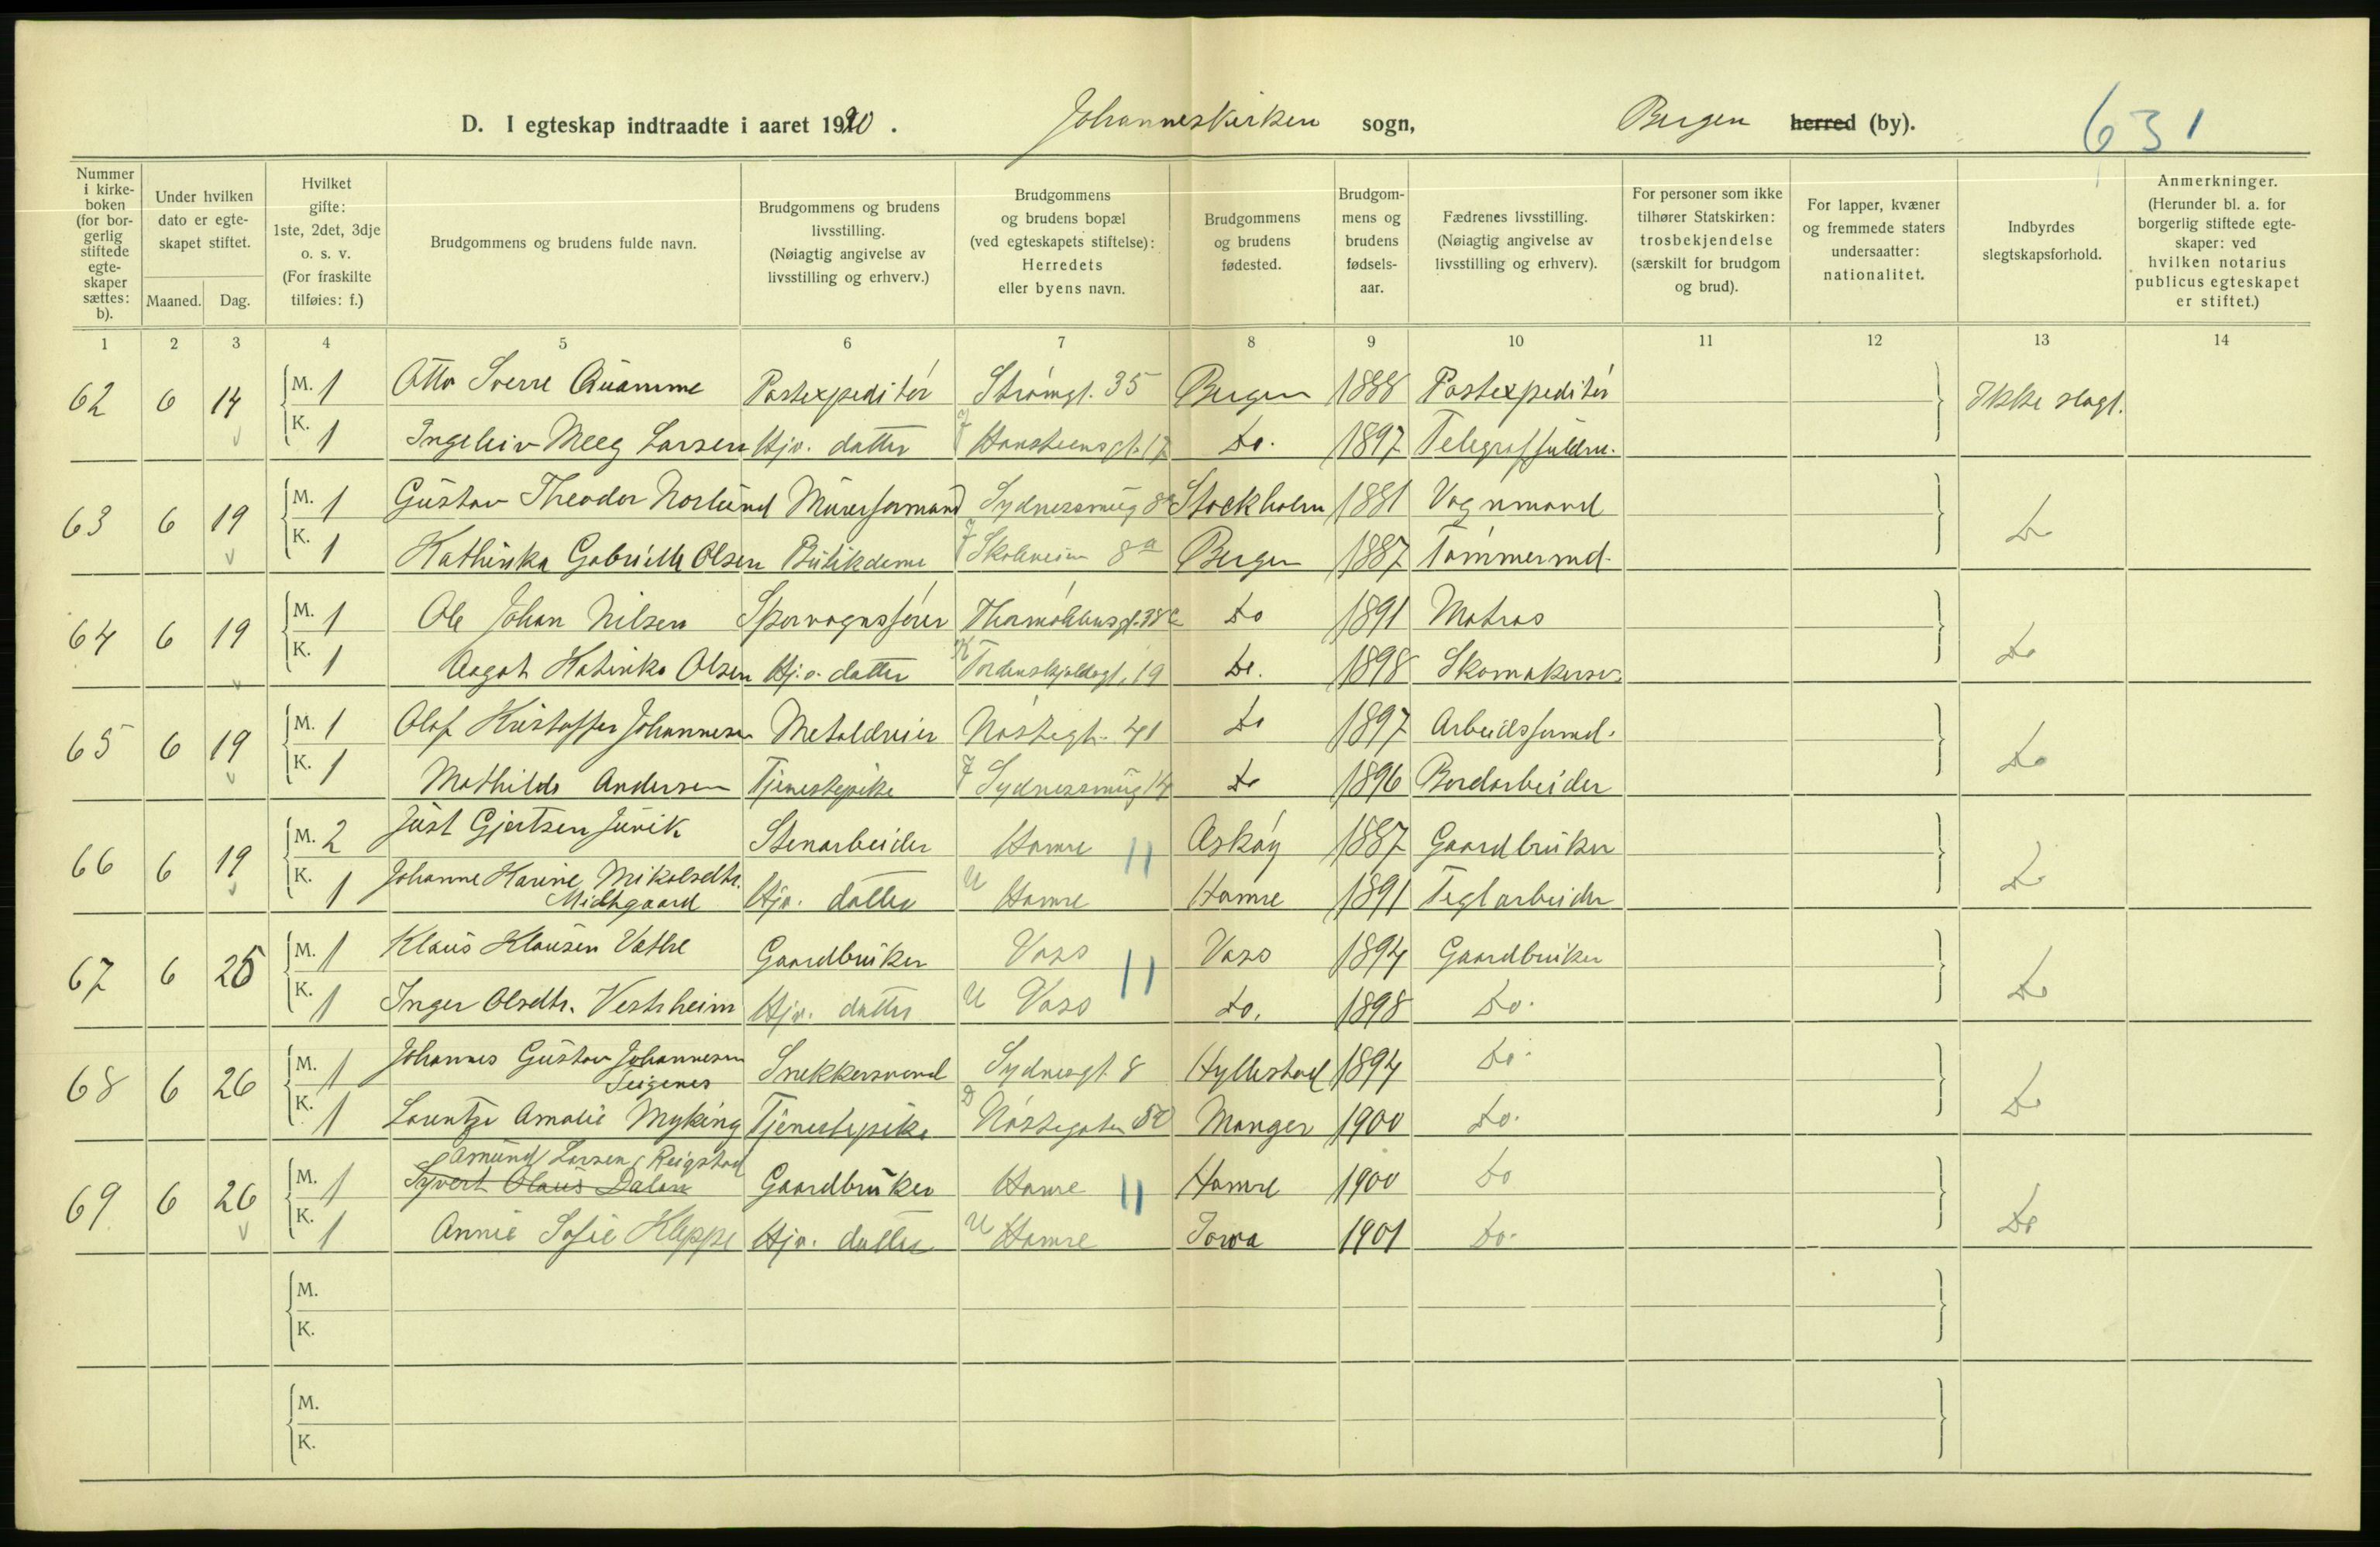 D. I egteskap indtraadte i aaret 1920. Johanneskirken sogn, Bergen herred (by). 631
Nummer i kirkeboken (for borgerlig stiftede egteskaper sættes: b).
Under hvilken dato er egteskapet stiftet.
Maaned. Dag.
Hvilket gifte: 1ste, 2det, 3dje o. s. v. (For fraskilte tilføies: f.)
Brudgommens og brudens fulde navn.
Brudgommens og brudens livsstilling. (Nøiagtig angivelse av livsstilling og erhverv.)
Brudgommens og brudens bopæl (ved egteskapets stiftelse): Herredets eller byens navn.
Brudgommens og brudens fødested.
Brudgommens og brudens fødselsaar.
Fædrenes livsstilling. (Nøiagtig angivelse av livsstilling og erhverv).
For personer som ikke tilhører Statskirken: trosbekjendelse (særskilt for brudgom og brud).
For lapper, kvæner og fremmede staters undersaatter: nationalitet.
Indbyrdes slegtskapsforhold.
Anmerkninger. (Herunder bl. a. for borgerlig stiftede egteskaper: ved hvilken notarius publicus egteskapet er stiftet.)
1 2 3 4 5 6 7 8 9 10 11 12 13 14
62 6 14 M. 1 Otto Sverre Quamme Postexpeditór Strømgt. 35 Bergen 1888 Postexpeditór Ikke slegt.
K. 1 Ingeleiv Meeg Larsen Hjv. datter J Hansteensgt. 17 Do. 1897 Telegraf
63 6 19 M. 1 Gustav Theodor Norlund Murerformand Sydnessmug Stockholm 1881 Vognmand Do
K. 1 Kathinka Gabrielle Olsen Butikdame J Skoleveien 8a Bergen 1887 Tømmermd.
64 6 19 M. 1 Ole Johan Nilsen Sporvognsfører Thormøhlensgt. 38 Do 1891 Matros Do
K. 1 Aagot Katinka Olsen Hj.v. datter K Tordenskjoldsgt. 19 Do. 1898
65 6 19 M. 1 Olaf Kristoffer Johannesen Metaldreier Nøstegt. 41 Do 1897 Arbeidsformd. Do
K. 1 Mathilde Andersen Tjenestepike J Sydnessmug 14 Do 1896 Bordarbeider
66 6 19 M. 2 Just Gjertsen Juvik Stenarbeider Hamre Askøy 1887 Gaardbruker Do
K. 1 Johanne Karine Mikalsdtr. Midtgaard Hjv. datter U Hamre Hamre 1891 Teglarbeider
67 6 25 M. 1 Klaus Klausen Væthe Gaardbruker Voss Voss 1894 Gaardbruker Do
K. 1 Inger Olsdtr. Vestrheim Hjv. datter U Voss Do. 1898 Do.
68 6 26 M. 1 Johannes Gustav Johannesen Snekkersvend Sydnesgt. 8 Hyllestad 1894 Do. Do
K. 1 Lorentze Amalie Myking Tjenestepike D Nøstegaten 50 Manger 1900 Do.
69 6 26 M. 1 Amund Larsen Reigstad
Syvert Olaus Dalane Gaardbruker Hamre Hamre 1900 Do Do
K. 1 Annie Sofie Kleppe Hjv. datter U Hamre Iowa 1901 Do.
M.
K.
M.
K.